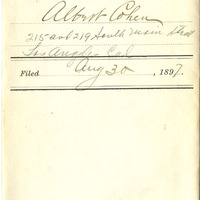 Albert Cohen
215 and 219 South Main Street
Los Angeles Cal
Filed Aug 30, 1897.